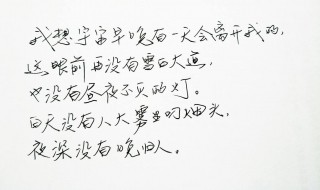 我想宇宙早晚有一天会离开我的,
这眼前再没有雪白大道,
也没有昼夜不灭的灯。
白天没有人大雾里叼烟头,
夜深没有晚归人。